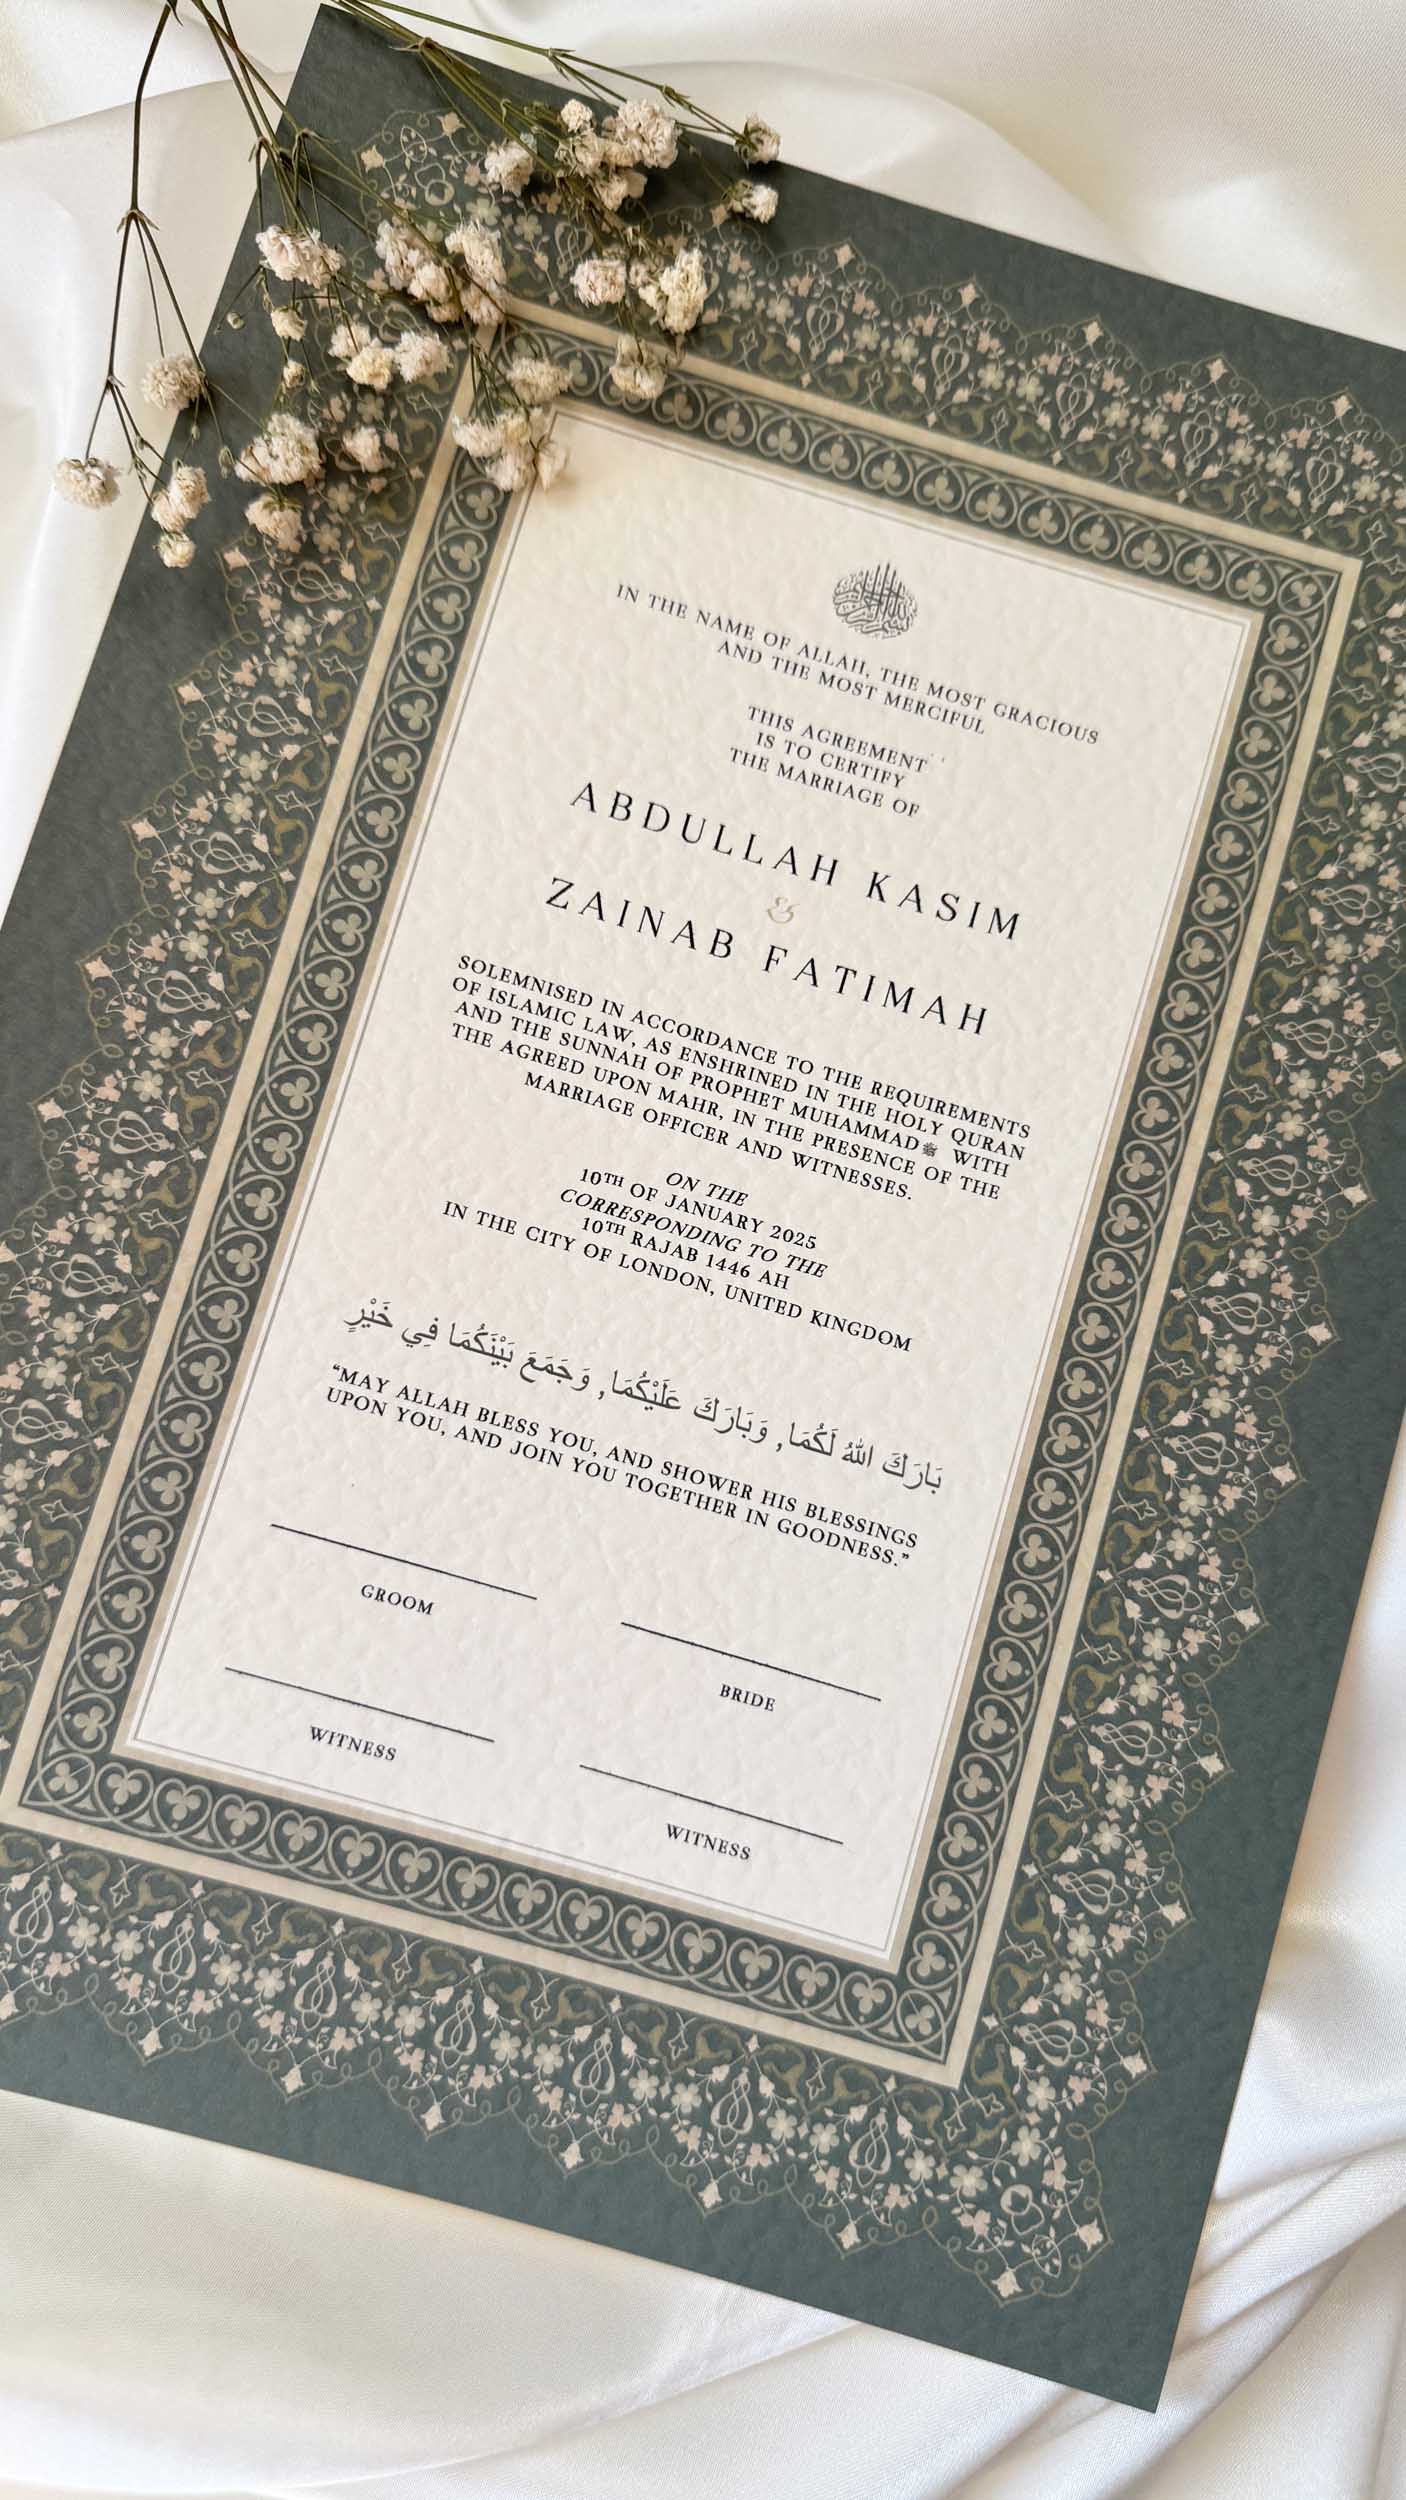 IN THE NAME OF ALLAH, THE MOST GRACIOUS
AND THE MOST MERCIFUL
THIS AGREEMENT
IS TO CERTIFY
THE MARRIAGE OF
ABDULLAH KASIM
&
ZAINAB FATIMAH
SOLEMNISED IN ACCORDANCE TO THE REQUIREMENTS
OF ISLAMIC LAW, AS ENSHRINED IN THE HOLY QURAN
AND THE SUNNAH OF PROPHET MUHAMMADﷺ WITH
THE AGREED UPON MAHR, IN THE PRESENCE OF THE
MARRIAGE OFFICER AND WITNESSES.
ON THE
10TH OF JANUARY 2025
CORRESPONDING TO THE
10TH RAJAB 1446 AH
IN THE CITY OF LONDON, UNITED KINGDOM
بَارَكَ اللهُ لَكُمَا, وَبَارَكَ عَلَيْكُمَا, وَجَمَعَ بَيْنَكُمَا فِي خَيْرٍ
“MAY ALLAH BLESS YOU, AND SHOWER HIS BLESSINGS
UPON YOU, AND JOIN YOU TOGETHER IN GOODNESS.”
GROOM
BRIDE
WITNESS
WITNESS